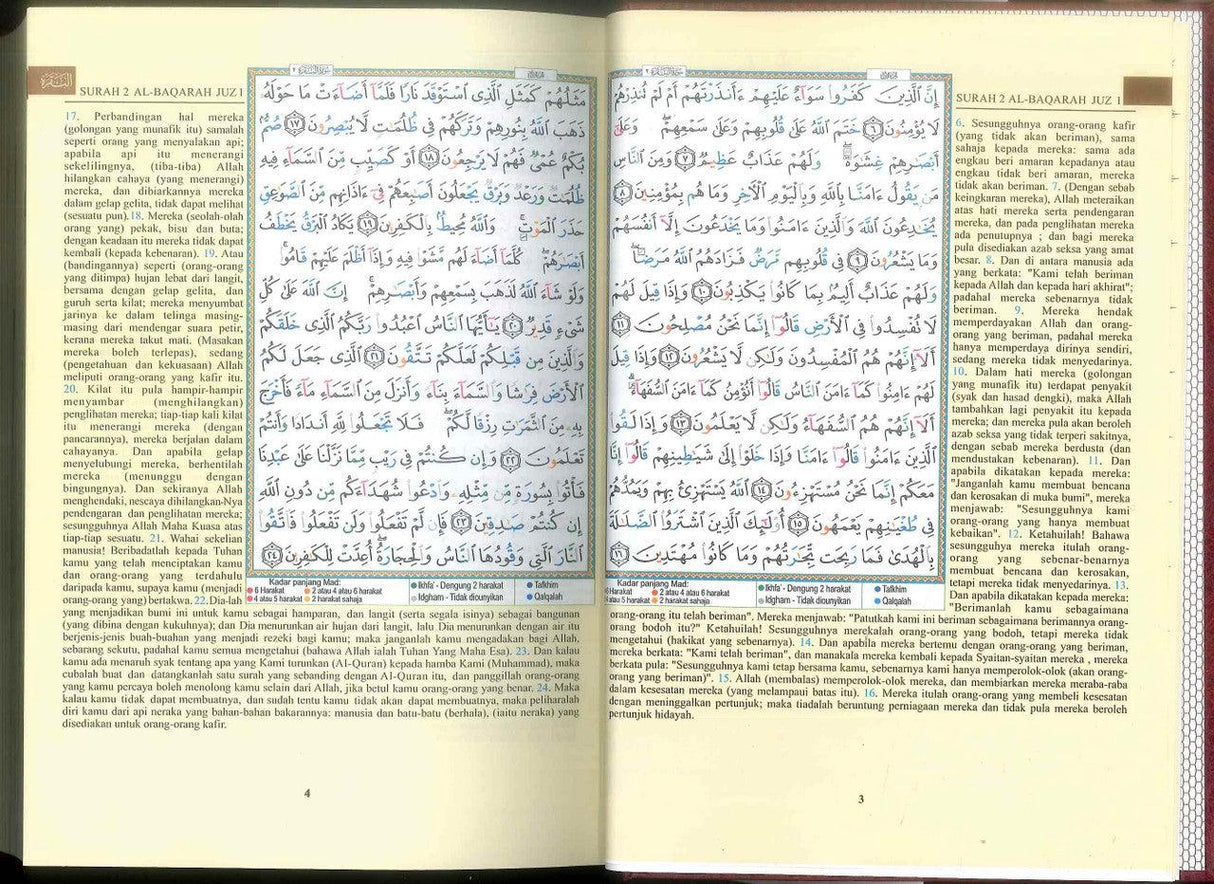 SURAH 2 AL-BAQARAH JUZ 1
إِنَّ ٱلَّذِينَ كَفَرُوا۟ سَوَآءٌ عَلَيْهِمْ ءَأَنذَرْتَهُمْ أَمْ لَمْ تُنذِرْهُمْ
لَا يُؤْمِنُونَ ٦ خَتَمَ ٱللَّهُ عَلَىٰ قُلُوبِهِمْ وَعَلَىٰ سَمْعِهِمْ ۖ وَعَلَىٰٓ
أَبْصَـٰرِهِمْ غِشَـٰوَةٌ ۖ وَلَهُمْ عَذَابٌ عَظِيمٌ ٧ وَمِنَ ٱلنَّاسِ
مَن يَقُولُ ءَامَنَّا بِٱللَّهِ وَبِٱلْيَوْمِ ٱلْـَٔاخِرِ وَمَا هُم بِمُؤْمِنِينَ ٨
يُخَـٰدِعُونَ ٱللَّهَ وَٱلَّذِينَ ءَامَنُوا۟ وَمَا يَخْدَعُونَ إِلَّآ أَنفُسَهُمْ
وَمَا يَشْعُرُونَ ٩ فِى قُلُوبِهِم مَّرَضٌ فَزَادَهُمُ ٱللَّهُ مَرَضًا ۖ
وَلَهُمْ عَذَابٌ أَلِيمٌۢ بِمَا كَانُوا۟ يَكْذِبُونَ ١٠ وَإِذَا قِيلَ لَهُمْ
لَا تُفْسِدُوا۟ فِى ٱلْأَرْضِ قَالُوٓا۟ إِنَّمَا نَحْنُ مُصْلِحُونَ ١١
أَلَآ إِنَّهُمْ هُمُ ٱلْمُفْسِدُونَ وَلَـٰكِن لَّا يَشْعُرُونَ ١٢ وَإِذَا قِيلَ
لَهُمْ ءَامِنُوا۟ كَمَآ ءَامَنَ ٱلنَّاسُ قَالُوٓا۟ أَنُؤْمِنُ كَمَآ ءَامَنَ ٱلسُّفَهَآءُ ۗ
أَلَآ إِنَّهُمْ هُمُ ٱلسُّفَهَآءُ وَلَـٰكِن لَّا يَعْلَمُونَ ١٣ وَإِذَا لَقُوا۟
ٱلَّذِينَ ءَامَنُوا۟ قَالُوٓا۟ ءَامَنَّا وَإِذَا خَلَوْا۟ إِلَىٰ شَيَـٰطِينِهِمْ قَالُوٓا۟ إِنَّا
مَعَكُمْ إِنَّمَا نَحْنُ مُسْتَهْزِءُونَ ١٤ ٱللَّهُ يَسْتَهْزِئُ بِهِمْ وَيَمُدُّهُمْ
فِى طُغْيَـٰنِهِمْ يَعْمَهُونَ ١٥ أُو۟لَـٰٓئِكَ ٱلَّذِينَ ٱشْتَرَوُا۟ ٱلضَّلَـٰلَةَ
بِٱلْهُدَىٰ فَمَا رَبِحَت تِّجَـٰرَتُهُمْ وَمَا كَانُوا۟ مُهْتَدِينَ ١٦
Kadar panjang Mad:
6 Harakat 2 atau 4 atau 6 harakat Ikhfa' - Dengung 2 harakat Tafkhim
4 atau 5 harakat 2 harakat sahaja Idgham - Tidak diounyikan Qalqalah
6. Sesungguhnya orang-orang kafir
(yang tidak akan beriman), sama
sahaja kepada mereka: sama ada
engkau beri amaran kepadanya atau
engkau tidak beri amaran, mereka
tidak akan beriman. 7. (Dengan sebab
keingkaran mereka), Allah meteraikan
atas hati mereka serta pendengaran
mereka, dan pada penglihatan mereka
ada penutupnya ; dan bagi mereka
pula disediakan azab seksa yang amat
besar. 8. Dan di antara manusia ada
yang berkata: "Kami telah beriman
kepada Allah dan kepada hari akhirat";
padahal mereka sebenarnya tidak
beriman. 9. Mereka hendak
memperdayakan Allah dan orang-
orang yang beriman, padahal mereka
hanya memperdaya dirinya sendiri,
sedang mereka tidak menyedarinya.
10. Dalam hati mereka (golongan
yang munafik itu) terdapat penyakit
(syak dan hasad dengki), maka Allah
tambahkan lagi penyakit itu kepada
mereka; dan mereka pula akan beroleh
azab seksa yang tidak terperi sakitnya,
dengan sebab mereka berdusta (dan
mendustakan kebenaran). 11. Dan
apabila dikatakan kepada mereka:
"Janganlah kamu membuat bencana
dan kerosakan di muka bumi", mereka
menjawab: "Sesungguhnya kami
orang-orang yang hanya membuat
kebaikan". 12. Ketahuilah! Bahawa
sesungguhya mereka itulah orang-
orang yang sebenar-benarnya
membuat bencana dan kerosakan,
tetapi mereka tidak menyedarinya. 13.
Dan apabila dikatakan kepada mereka:
"Berimanlah kamu sebagaimana
orang-orang itu telah beriman". Mereka menjawab: "Patutkah kami ini beriman sebagaimana berimannya orang-
orang bodoh itu?" Ketahuilah! Sesungguhnya merekalah orang-orang yang bodoh, tetapi mereka tidak
mengetahui (hakikat yang sebenarnya). 14. Dan apabila mereka bertemu dengan orang-orang yang beriman,
mereka berkata: "Kami telah beriman", dan manakala mereka kembali kepada Syaitan-syaitan mereka , mereka
berkata pula: "Sesungguhnya kami tetap bersama kamu, sebenarnya kami hanya memperolok-olok (akan orang-
orang yang beriman)". 15. Allah (membalas) memperolok-olok mereka, dan membiarkan mereka meraba-raba
dalam kesesatan mereka (yang melampaui batas itu). 16. Mereka itulah orang-orang yang membeli kesesatan
dengan meninggalkan pertunjuk; maka tiadalah beruntung perniagaan mereka dan tidak pula mereka beroleh
pertunjuk hidayah.
3
SURAH 2 AL-BAQARAH JUZ 1
مَثَلُهُمْ كَمَثَلِ ٱلَّذِى ٱسْتَوْقَدَ نَارًا فَلَمَّآ أَضَآءَتْ مَا حَوْلَهُۥ
ذَهَبَ ٱللَّهُ بِنُورِهِمْ وَتَرَكَهُمْ فِى ظُلُمَـٰتٍ لَّا يُبْصِرُونَ ١٧ صُمٌّۢ
بُكْمٌ عُمْىٌ فَهُمْ لَا يَرْجِعُونَ ١٨ أَوْ كَصَيِّبٍ مِّنَ ٱلسَّمَآءِ فِيهِ
ظُلُمَـٰتٌ وَرَعْدٌ وَبَرْقٌ يَجْعَلُونَ أَصَـٰبِعَهُمْ فِىٓ ءَاذَانِهِم مِّنَ ٱلصَّوَٰعِقِ
حَذَرَ ٱلْمَوْتِ ۚ وَٱللَّهُ مُحِيطٌۢ بِٱلْكَـٰفِرِينَ ١٩ يَكَادُ ٱلْبَرْقُ يَخْطَفُ
أَبْصَـٰرَهُمْ ۖ كُلَّمَآ أَضَآءَ لَهُم مَّشَوْا۟ فِيهِ وَإِذَآ أَظْلَمَ عَلَيْهِمْ قَامُوا۟ ۚ
وَلَوْ شَآءَ ٱللَّهُ لَذَهَبَ بِسَمْعِهِمْ وَأَبْصَـٰرِهِمْ ۚ إِنَّ ٱللَّهَ عَلَىٰ كُلِّ
شَىْءٍ قَدِيرٌ ٢٠ يَـٰٓأَيُّهَا ٱلنَّاسُ ٱعْبُدُوا۟ رَبَّكُمُ ٱلَّذِى خَلَقَكُمْ
وَٱلَّذِينَ مِن قَبْلِكُمْ لَعَلَّكُمْ تَتَّقُونَ ٢١ ٱلَّذِى جَعَلَ لَكُمُ
ٱلْأَرْضَ فِرَٰشًا وَٱلسَّمَآءَ بِنَآءً وَأَنزَلَ مِنَ ٱلسَّمَآءِ مَآءً فَأَخْرَجَ
بِهِۦ مِنَ ٱلثَّمَرَٰتِ رِزْقًا لَّكُمْ ۖ فَلَا تَجْعَلُوا۟ لِلَّهِ أَندَادًا وَأَنتُمْ
تَعْلَمُونَ ٢٢ وَإِن كُنتُمْ فِى رَيْبٍ مِّمَّا نَزَّلْنَا عَلَىٰ عَبْدِنَا
فَأْتُوا۟ بِسُورَةٍ مِّن مِّثْلِهِۦ وَٱدْعُوا۟ شُهَدَآءَكُم مِّن دُونِ ٱللَّهِ
إِن كُنتُمْ صَـٰدِقِينَ ٢٣ فَإِن لَّمْ تَفْعَلُوا۟ وَلَن تَفْعَلُوا۟ فَٱتَّقُوا۟
ٱلنَّارَ ٱلَّتِى وَقُودُهَا ٱلنَّاسُ وَٱلْحِجَارَةُ ۖ أُعِدَّتْ لِلْكَـٰفِرِينَ ٢٤
Kadar panjang Mad:
6 Harakat 2 atau 4 atau 6 harakat Ikhfa - Dengung 2 harakat Tafkhim
4 atau 5 harakat 2 harakat sahaja Idgham - Tidak diounyikan Qalqalah
17. Perbandingan hal mereka
(golongan yang munafik itu) samalah
seperti orang yang menyalakan api;
apabila api itu menerangi
sekelilingnya, (tiba-tiba) Allah
hilangkan cahaya (yang menerangi)
mereka, dan dibiarkannya mereka
dalam gelap gelita, tidak dapat melihat
(sesuatu pun). 18. Mereka (seolah-olah
orang yang) pekak, bisu dan buta;
dengan keadaan itu mereka tidak dapat
kembali (kepada kebenaran). 19. Atau
(bandingannya) seperti (orang-orang
yang ditimpa) hujan lebat dari langit,
bersama dengan gelap gelita, dan
guruh serta kilat; mereka menyumbat
jarinya ke dalam telinga masing-
masing dari mendengar suara petir,
kerana mereka takut mati. (Masakan
mereka boleh terlepas), sedang
(pengetahuan dan kekuasaan) Allah
meliputi orang-orang yang kafir itu.
20. Kilat itu pula hampir-hampir
menyambar (menghilangkan)
penglihatan mereka; tiap-tiap kali kilat
itu menerangi mereka (dengan
pancarannya), mereka berjalan dalam
cahayanya. Dan apabila gelap
menyelubungi mereka, berhentilah
mereka (menunggu dengan
bingungnya). Dan sekiranya Allah
menghendaki, nescaya dihilangkan-Nya
pendengaran dan penglihatan mereka;
sesungguhnya Allah Maha Kuasa atas
tiap-tiap sesuatu. 21. Wahai sekelian
manusia! Beribadatlah kepada Tuhan
kamu yang telah menciptakan kamu
dan orang-orang yang terdahulu
daripada kamu, supaya kamu (menjadi
orang-orang yang) bertakwa. 22. Dia-lah
yang menjadikan bumi ini untuk kamu sebagai hamparan, dan langit (serta segala isinya) sebagai bangunan
(yang dibina dengan kukuhnya); dan Dia menurunkan air hujan dari langit, lalu Dia menurunkan dengan air itu
berjenis-jenis buah-buahan yang menjadi rezeki bagi kamu; maka janganlah kamu mengadakan bagi Allah,
sebarang sekutu, padahal kamu semua mengetahui (bahawa Allah ialah Tuhan Yang Maha Esa). 23. Dan kalau
kamu ada menaruh syak tentang apa yang Kami turunkan (Al-Quran) kepada hamba Kami (Muhammad), maka
cubalah buat dan datangkanlah satu surah yang sebanding dengan Al-Quran itu, dan panggillah orang-orang
yang kamu percaya boleh menolong kamu selain dari Allah, jika betul kamu orang-orang yang benar. 24. Maka
kalau kamu tidak dapat membuatnya, dan sudah tentu kamu tidak akan dapat membuatnya, maka peliharalah
diri kamu dari api neraka yang bahan-bahan bakarannya: manusia dan batu-batu (berhala), (iaitu neraka) yang
disediakan untuk orang-orang kafir.
4